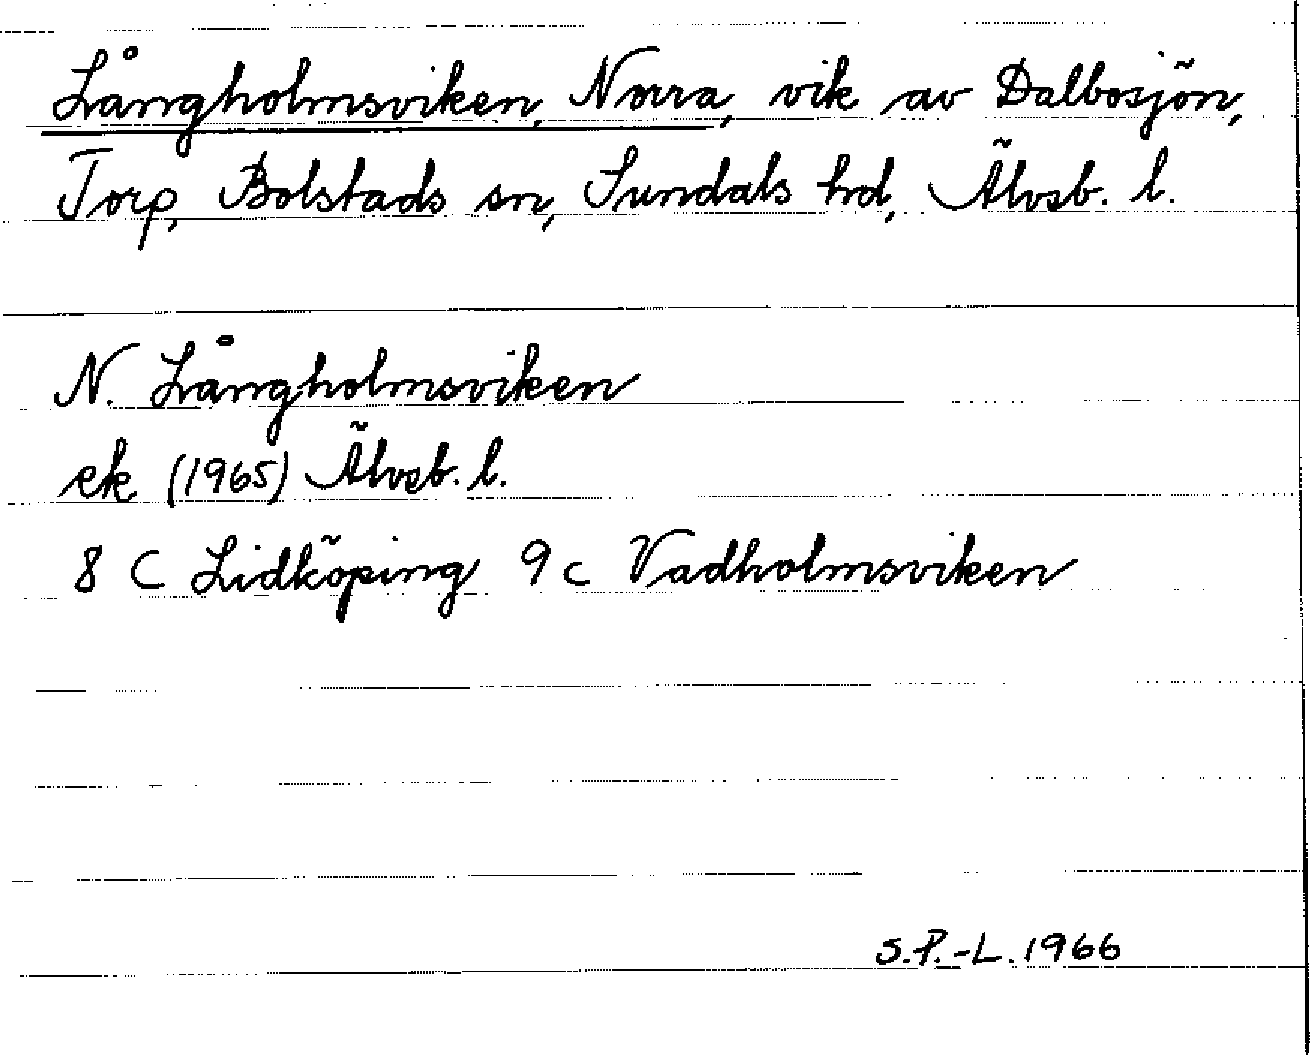 Långholmsviken, Norra, vik av Dalbosjön,
Torp, Bolstads sn, Sundals hd, Älvsb. l.
N. Långholmsviken
ek (1965) Älvsb. l.
8 C Lidköping 9 c Vadholmsviken
S.P.-L. 1966